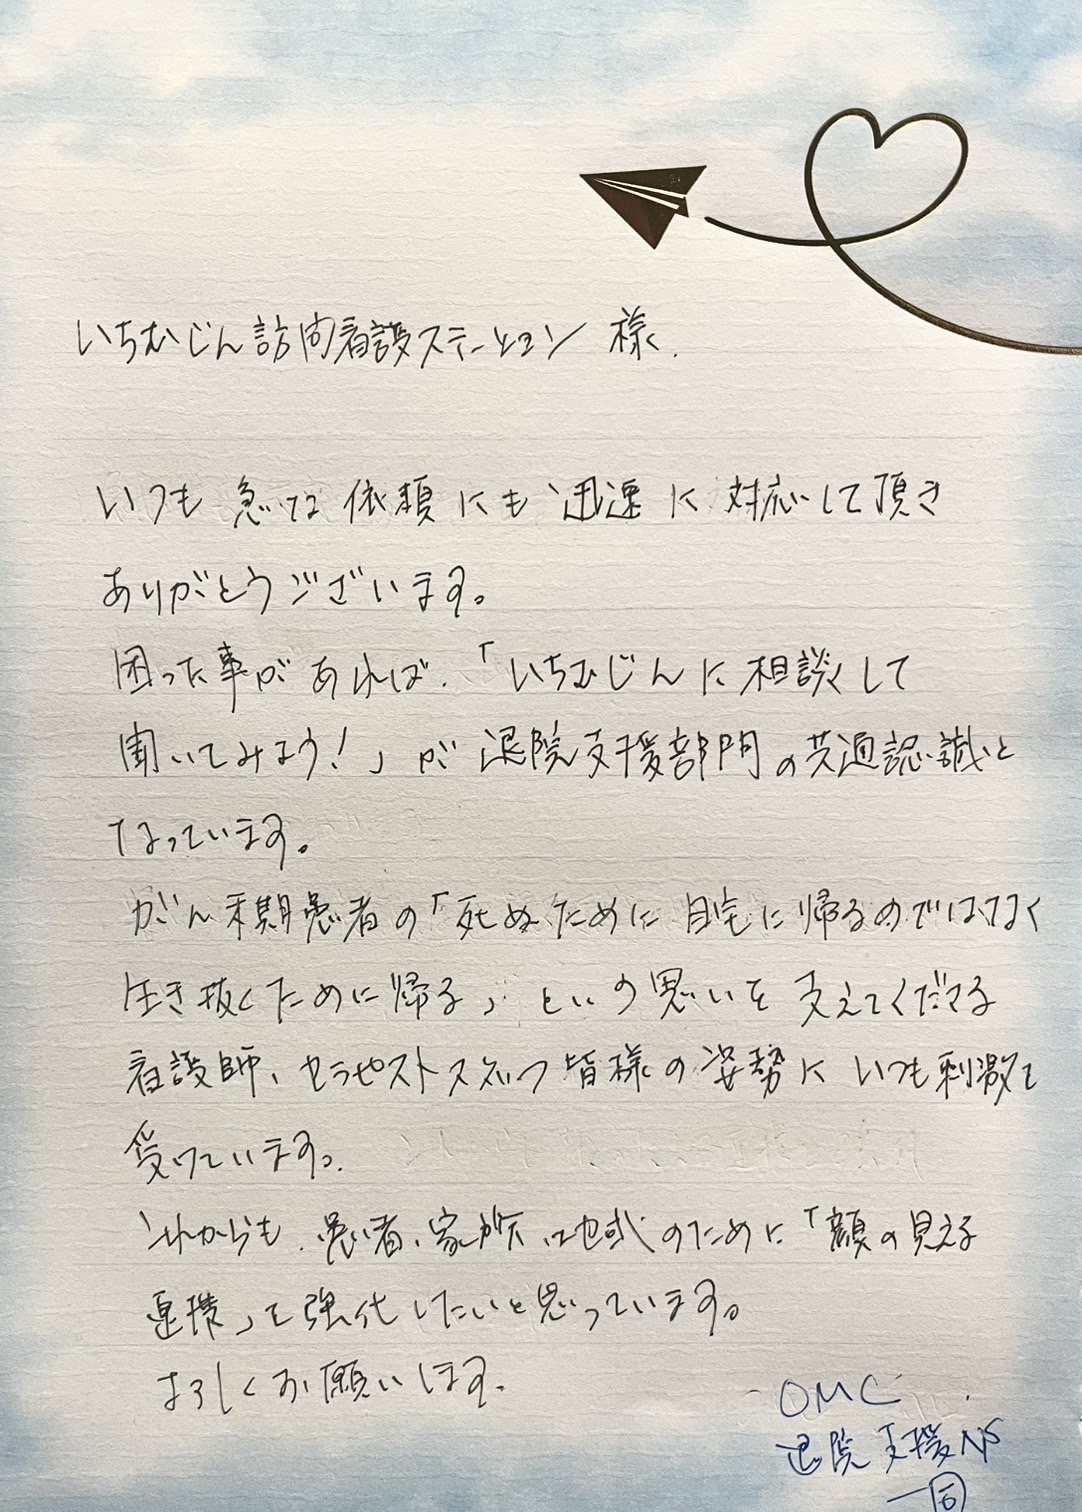 いちむじん訪問看護ステーション 様
いつも 急な 依頼にも 迅速に 対応して頂き
ありがとうございます。
困った事が あれば、「いちむじんに相談して
聞いてみよう!」が 退院支援部門の共通認識と
なっています。
がん末期患者の「死ぬために 自宅に帰るのではなく
生き抜くために帰る」という思いを 支えてくださる
看護師、セラピストスタッフ皆様の 姿勢に いつも刺激を
受けています。
これからも、患者、家族、地域のために「顔の見える
連携」を強化したいと思っています。
よろしくお願いします。
OMC
退院支援NS
一同